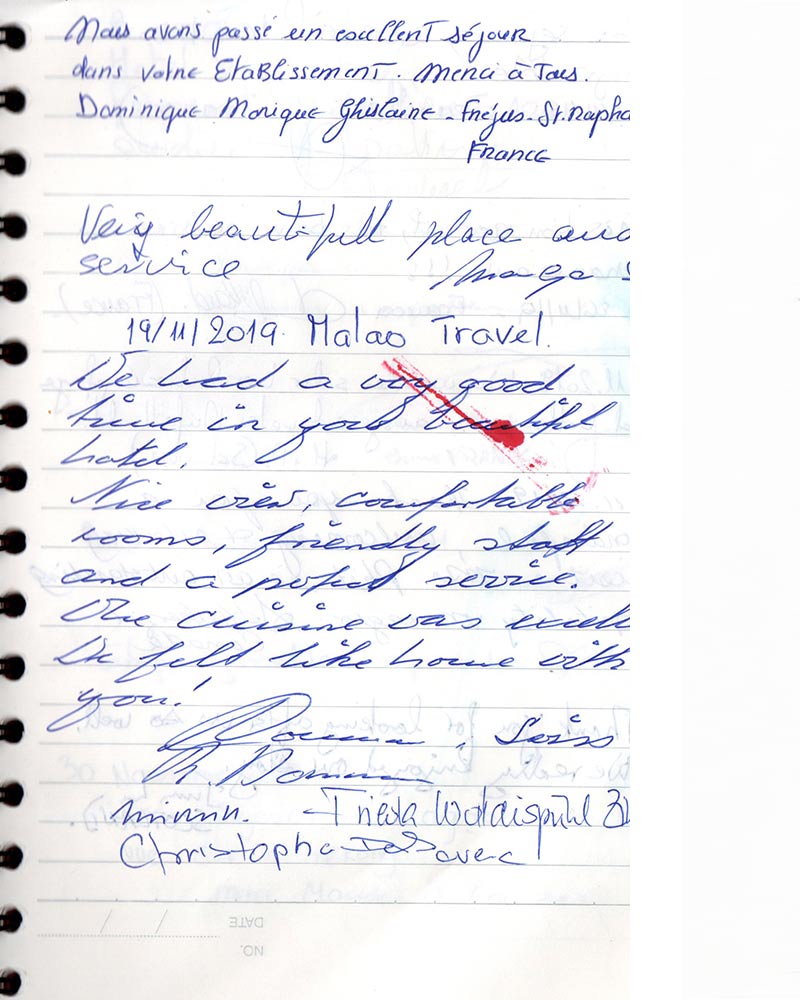 Nous avons passé un excellent séjour
dans votre Etablissement. Merci à Tous.
Dominique Monique Ghislaine - Fréjus - St. Rapha
France
Very beautifull place and
service
19/11/2019 Malao Travel.
We had a very good
time in your beautiful
hotel.
Nice view, comfortable
rooms, friendly staff
and a perfect service.
The cuisine was excell
We felt like home with
you!
Swiss
Christopha
DATE / /
NO.